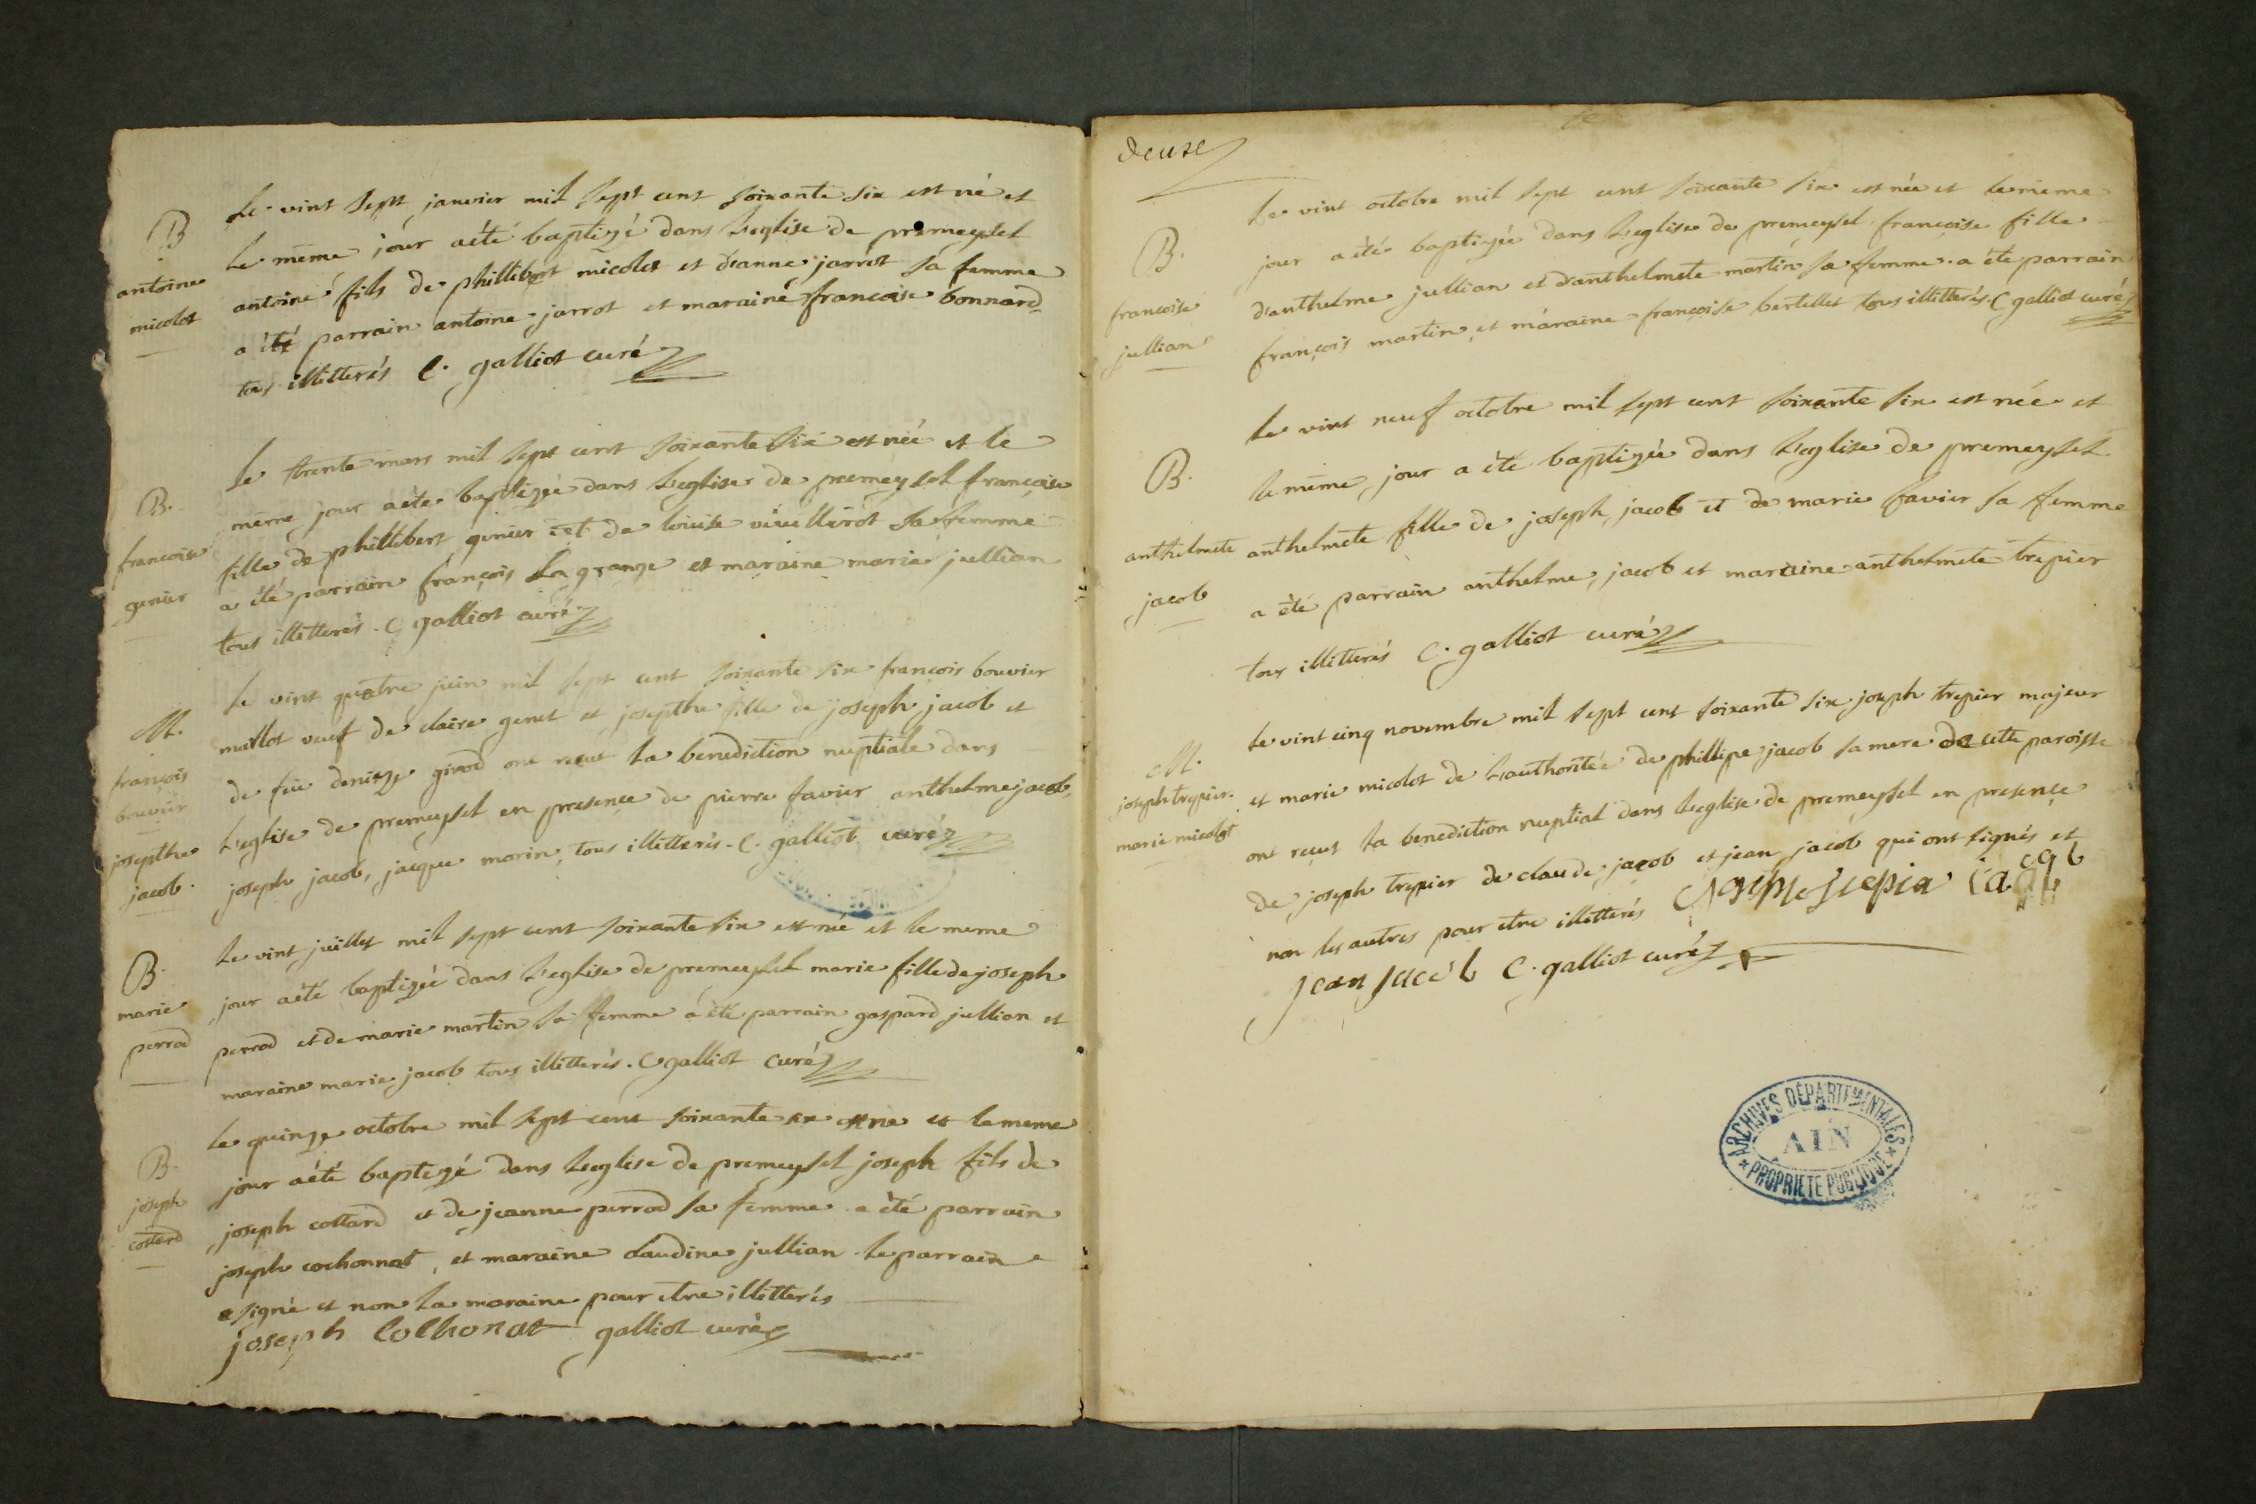 B
antoine
micolot
Le vint sept janvier mil sept cent soixante six est né et
le même jour a été baptizé dans L'eglise de premeysel
antoine fils de phillibert micolot et d'anne jarrot sa femme
a été parrain antoine jarrot et maraine francoise bonnard
tous illitterés C. galliot curé
B.
francoise
genier
Le trente mars mil sept cent soixante six est née et le
même jour a éte baptizée dans L'eglise de premeysel françoise
fille de phillibert genier et de louise vuillerot sa femme
a été parrain françois La grange et maraine marie jullian
tous illitterés. C galliot curé
M.
françois
bouvier
josepthe
jacob.
Le vint quatre juin mil sept cent soixante six françois bouvier
maillot veuf de claire genet et josepthe fille de joseph jacob et
de füe denize girod ont reçut la benediction nuptiale dans
L'eglise de premeysel en presençe de pierre favier anthelme jacob,
joseph jacob, jacque morin, tous illitterés. C. galliot curé
B.
marie
perrod
Le vint juillet mil sept cent soixante six est né et le meme
jour a été baptizée dans L'eglise de premeysel marie fille de joseph
perrod et de marie martin sa femme a été parrain gaspard jullian et
maraine marie jacob tous illitterés. C galliot curé
B.
joseph
cottard
Le quinze octobre mil sept cent soixante six est né et le meme
jour a été baptizé dans L'eglise de premeysel joseph fils de
joseph cottard et de jeanne perrod sa femme a été parrain
joseph cochonnat, et maraine claudine jullian le parrain
a signé et non la maraine pour etre illitterés
joseph Cochonat galliot curé
deuse
B.
françoise
jullian
Le vint octobre mil sept cent soixante six est née et le meme
jour a été baptizée dans L'eglise de premeysel françoise fille
d'anthelme jullian et d'anthelmete martin sa femme a été parrain
françois martin, et maraine françoise bertellet tous illitterés. C galliot curé
B.
anthelmete
jacob
Le vint neuf octobre mil sept cent soixante six est née et
le même jour a été baptizée dans L'eglise de premeysel
anthelmete fille de joseph jacob et de marie favier sa femme
a été parrain anthelme jacob et maraine anthelmete trepier
tous illitterés C. galliot curé
M.
joseph trepier.
marie micolot
Le vint cinq novembre mil sept cent soixante six joseph trepier majeur
et marie micolot de L'authoritée de phillipe jacob sa mere de cette paroisse
ont reçut la benediction nuptial dans L'eglise de premeysel en presençe
de joseph trepier de claude jacob et jean jacob qui ont signés et
non les autres pour etre illitterés
jean jacob C. galliot curé
ARCHIVES DÉPARTEMENTALES
AIN
PROPRIETE PUBLIQUE